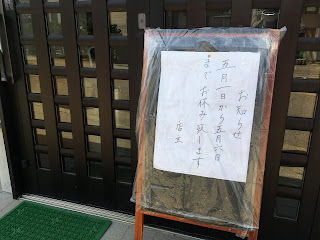 お知らせ
五月一日から五月六日
まで お休み致します
店主